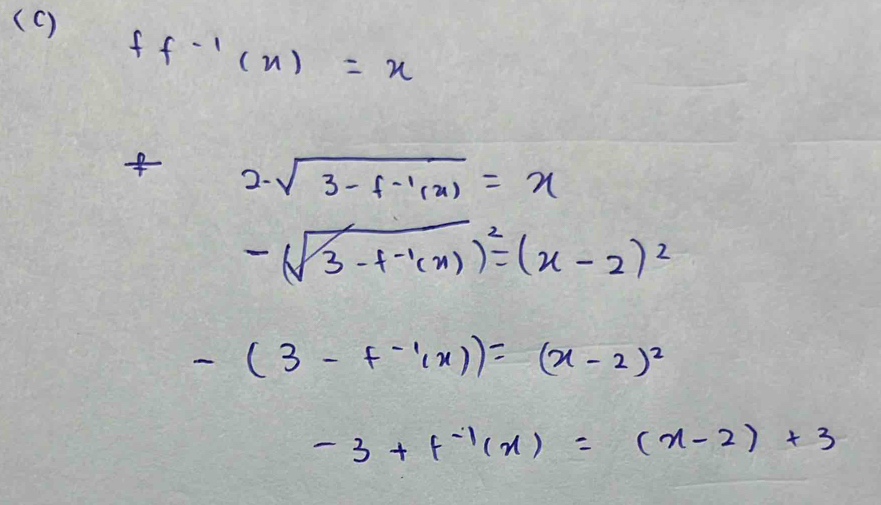 (c)
f f⁻¹(x) = x
2-√(3-f⁻¹(x)) = x
-(√(3-f⁻¹(x)))² = (x-2)²
-(3-f⁻¹(x)) = (x-2)²
-3+f⁻¹(x) = (x-2)+3